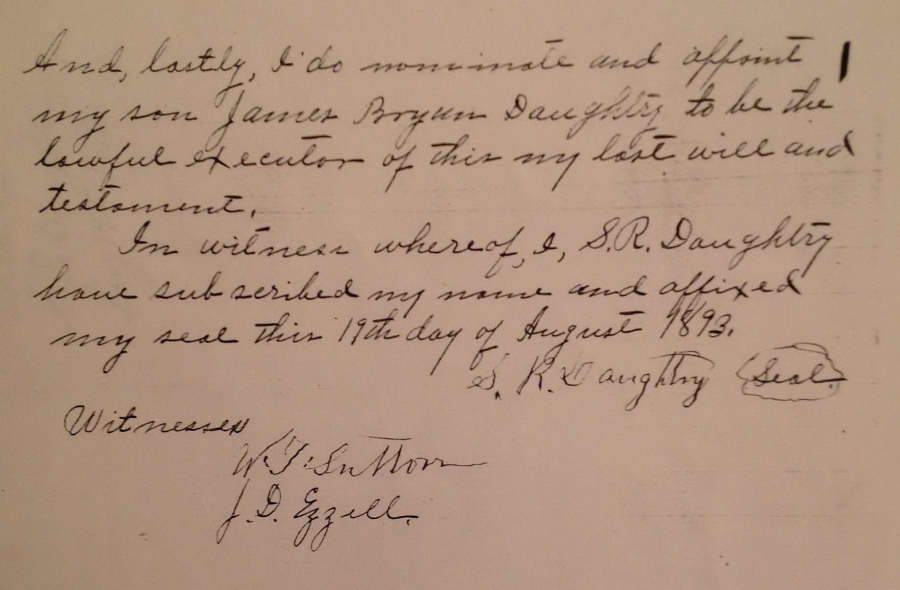 And, lastly, I do nominate and appoint
my son James Bryan Daughtry to be the
lawful executor of this my last will and
testament.
In witness whereof, I, S.R. Daughtry
have subscribed my name and affixed
my seal this 19th day of August 1893.
S. R. Daughtry Seal.
Witnesses
W. T. Sutton
J. D. Ezzell.